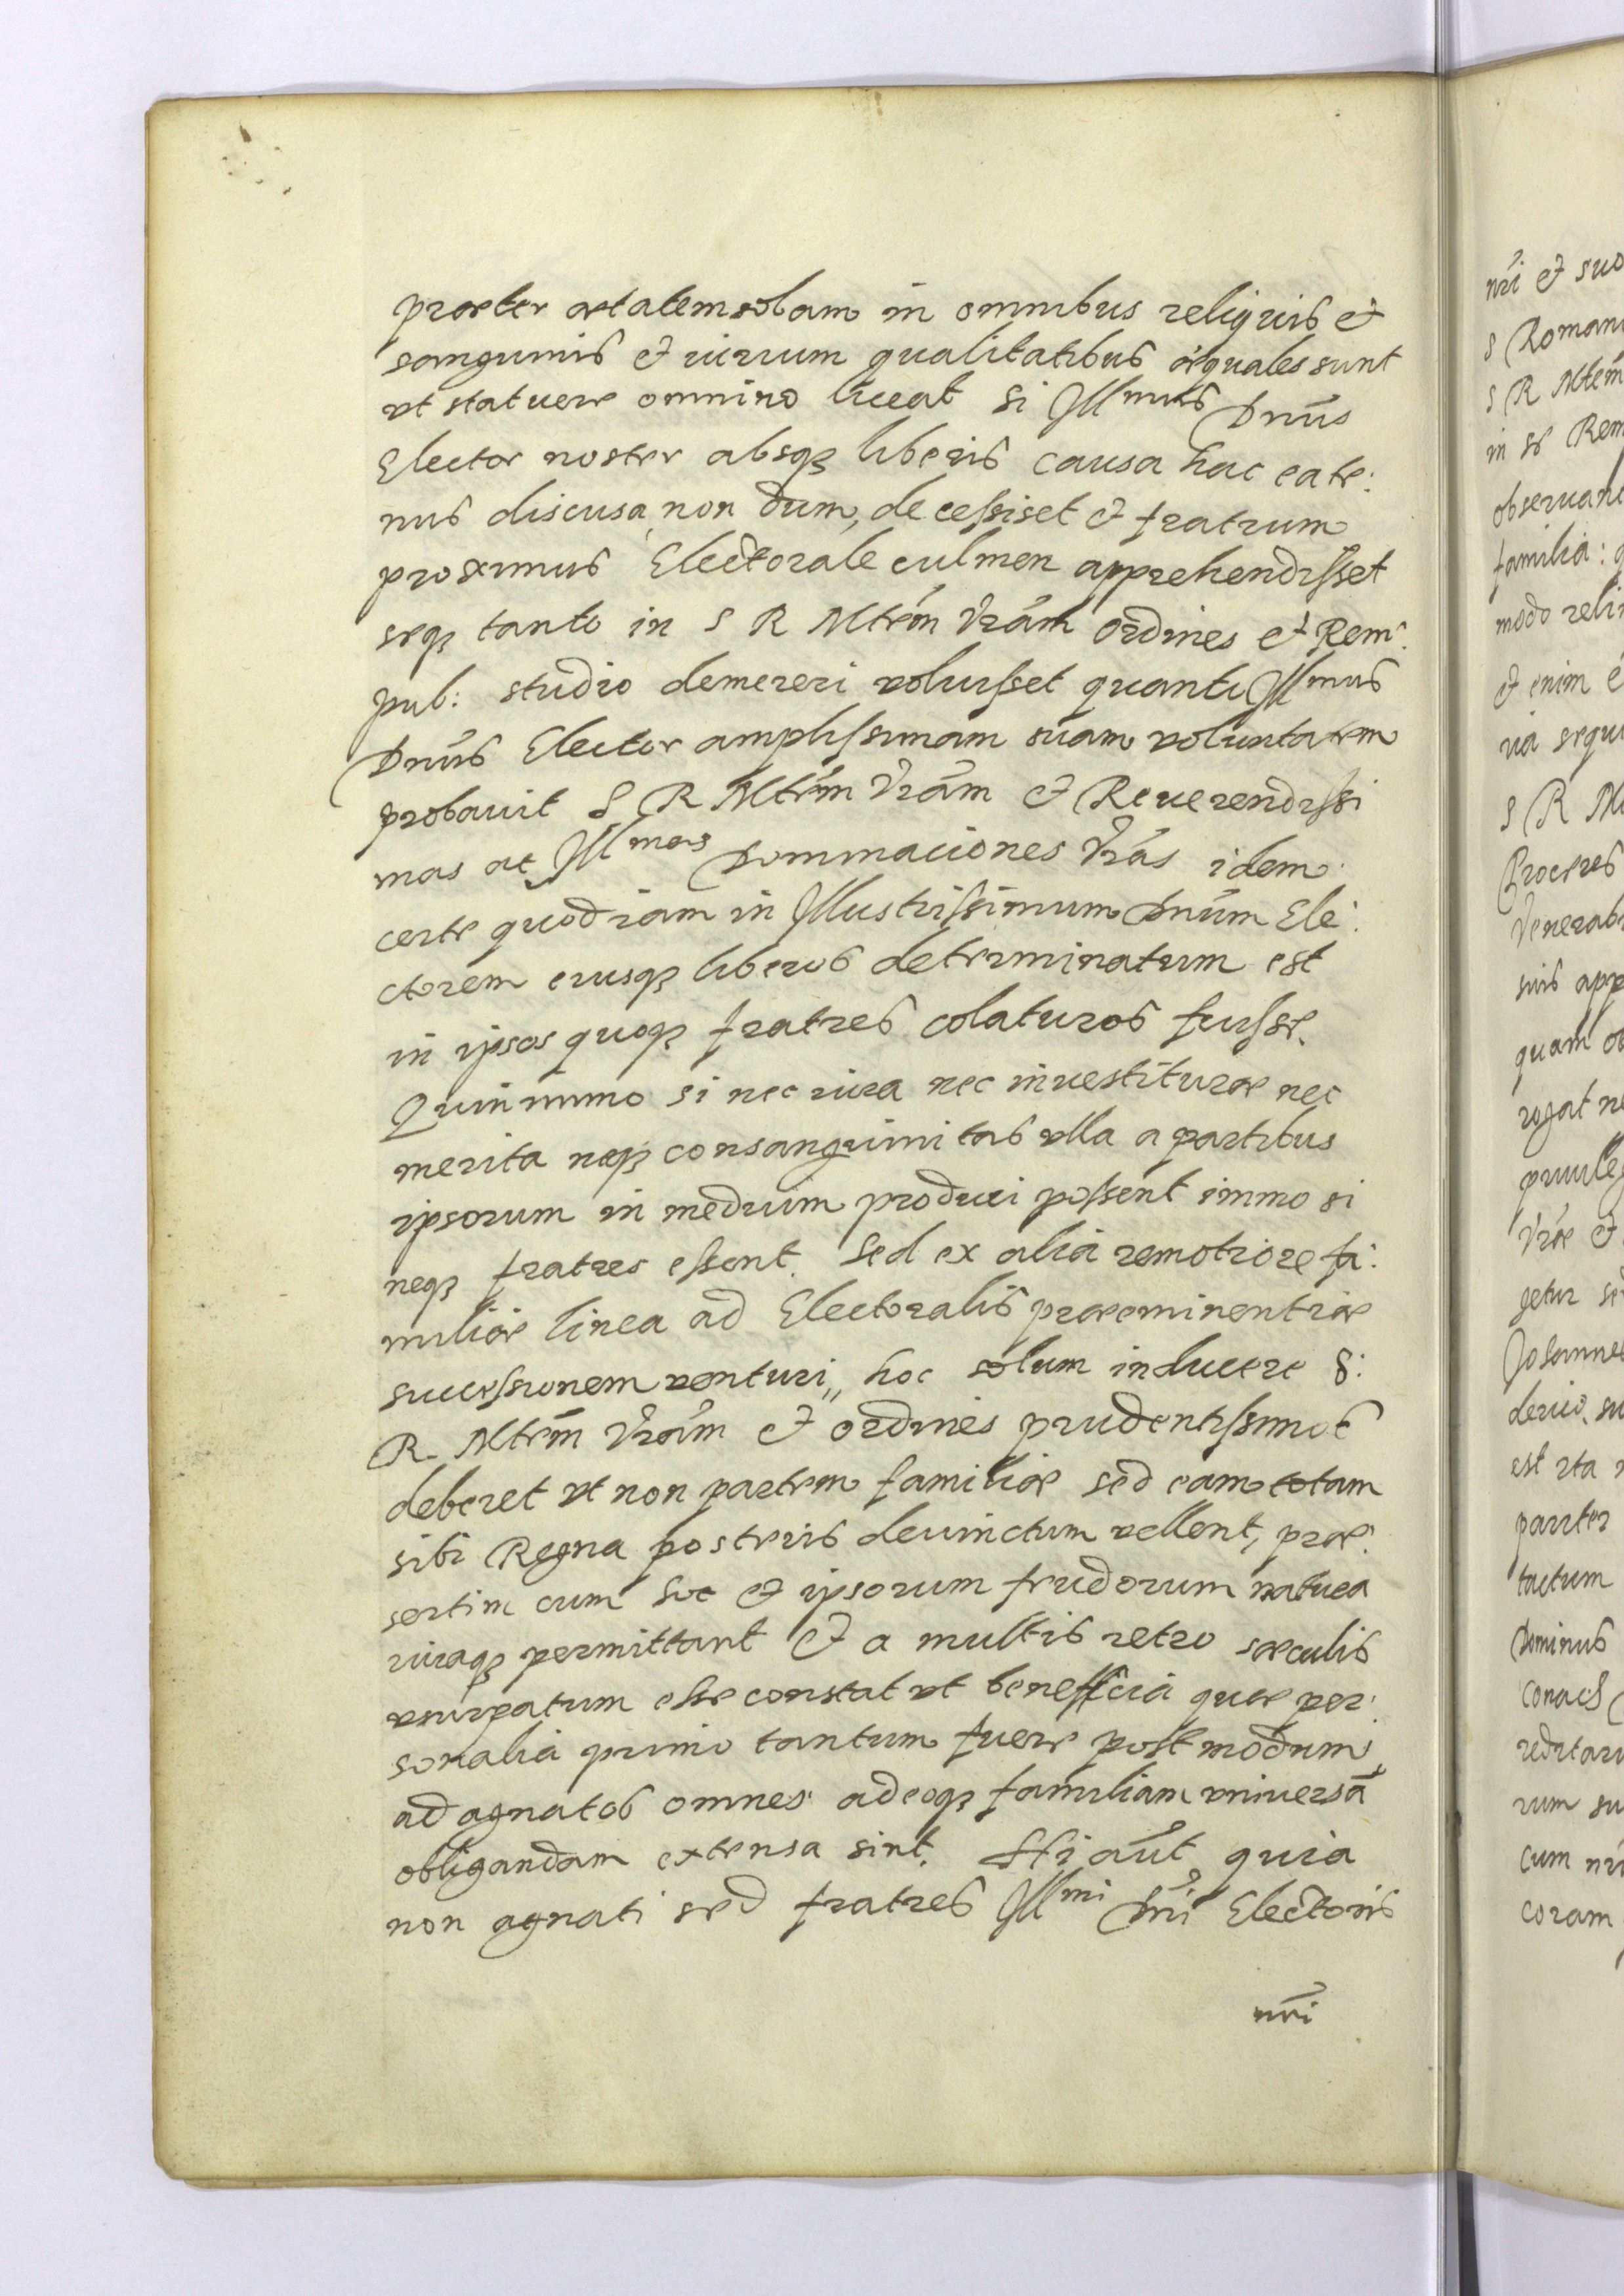 praeter aetatem solam in omnibus reliquis et
sanguinis et iurium qualitatibus aequales sunt
vt statuere omnino liceat si Illmus Dnus
Elector noster absq liberis causa hac eate:
nus discusa non dum, decessiset et fratrum
proximus Electorale culmen apprehendisset
seq tanto in S R Mtem Vram ordines et Rem:
pub: studio demereri voluisset quanti Illmus
Dnus Elector amplissimam suam voluntatem
probauit S R Mtem Vram et Reuerendissi
mas ac Illmas Dominaciones Vras idem
certe quod iam in Illustrissimum Dnum Ele:
ctorem eiusq liberos determinatum est
in ipsos quoq fratres colaturos fuisse.
Quin immo si nec iura nec inuestiturae nec
merita neq consanguinitas vlla a partibus
ipsorum in medium produci possent immo si
neq fratres essent. Sed ex alia remotiore fa:
miliae linea ad Electoralis praeeminentiae
successionem venturi,, hoc solum inducere S:
R. Mtem Vram et ordines prudentissimos
deberet vt non partem familiae sed eam totam
sibi Regna posteris deuinctum vellent, prae:
sertim cum hoc et ipsorum feudorum natura
iuraq permittant et a multis retro saeculis
vsurpatum esse constat vt beneficia quae per:
sonalia primo tantum fuere post modum
ad agnatos omnes adeoq familiam vniuersã
obligandam extensa sint. Hi aut quia
non agnati sed fratres Illmi Dni Electoris
nri
nri et suo
S Romani
S R Mtem
in se Rem
obseruan
familia:
modo reli
et enim
via sequi
S R M
Proceres
Venerab
suis app
quam ob
rogat ne
priuileg
Vrae et
getur se
Johannes
derico, su
est ita
pariter
tactum
Dominus
Conaes
reditari
rum su
cum nri
coram